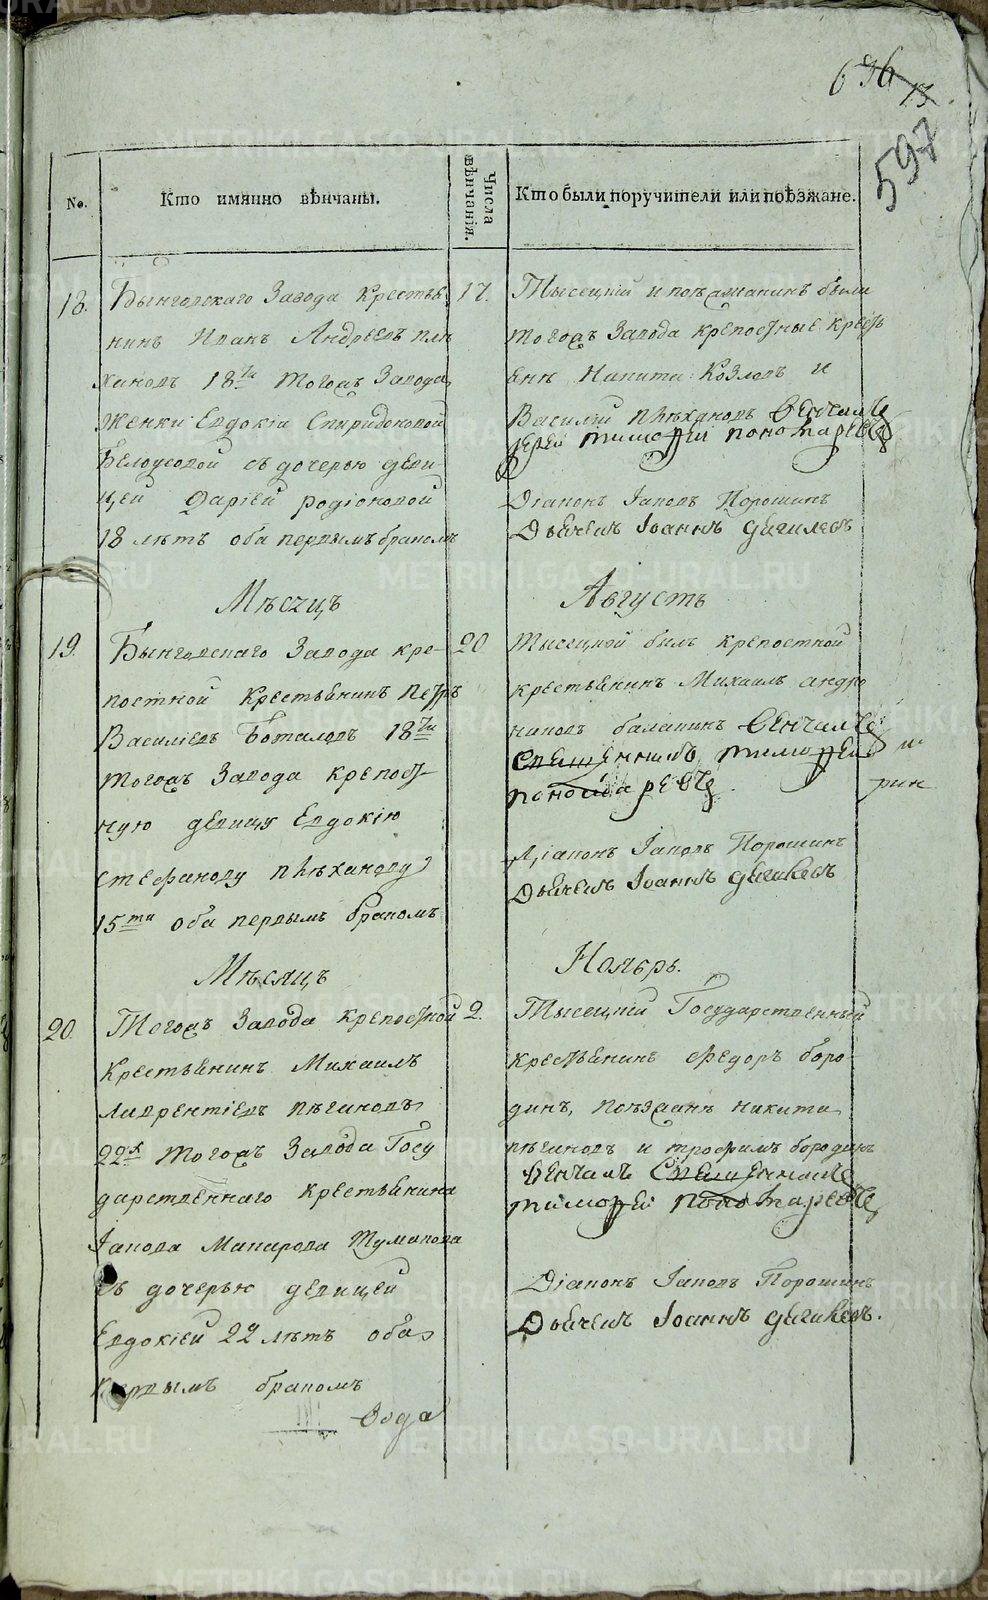 696
13
597
№.
Кто имянно вѣнчаны.
Числа вѣнчанія.
Кто были поручители или поѣзжане.
18.
Бынговскаго Завода Крестья
нинъ Иванъ Андреевъ Плѣ
хановъ 18ти тогожъ Завода
Женки Евдокіи Спиридоновой
Белоусовой съ дочерью деви
цей Дарiей родiоновой
18 лѣтъ оба первымъ бракомъ
17.
Тысецкiй и поѣзжанинъ были
тогожъ Завода крепостные кресть
яне Никита Козловъ и
Василiй Плѣхановъ Венчалъ
iерей тимофей пономаревъ
Дiаконъ Iаковъ Порошинъ
Дьячекъ Iоаннъ дягилевъ
Мѣсяцъ
Августъ
19.
Бынговскаго Завода кре-
постной Крестьянинъ Петръ
Василiевъ Боталовъ 18ти
тогожъ Завода крепост-
ную девицу Евдокiю
стефанову плѣханову
15ти оба первымъ бракомъ
20
Тысецкой былъ крепостной
крестьянинъ Михаилъ андро
никовъ балакинъ Венчалъ
Священникъ тимофей
пономаревъ
рин
Дiаконъ Iаковъ Порошинъ
Дьячекъ Iоаннъ дягилевъ
Мѣсяцъ
Ноябрь.
20.
Тогожъ Завода крепостной
Крестьянинъ Михаилъ
лаврентiевъ пѣгановъ
22х тогожъ Завода Госу
дарственнаго крестьянина
Iакова Макарова Тумакова
съ дочерью девицей
Евдокiей 22 лѣтъ оба
первымъ бракомъ
Вода
2.
Тысецкiй Государственный
крестьянинъ Федоръ боро
динъ, поѣзжанѣ никита
пѣгановъ и трофимъ бородинъ
Венчалъ Священникъ
тимофей пономаревъ
Дiаконъ Iаковъ Порошинъ
Дьячекъ Iоаннъ дягилевъ.
METRIKI.GASO-URAL.RU